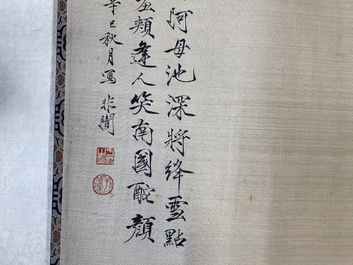 阿母池深將絳雲點
頰逢人笑南國酡顏
辛巳秋月寫 非闇